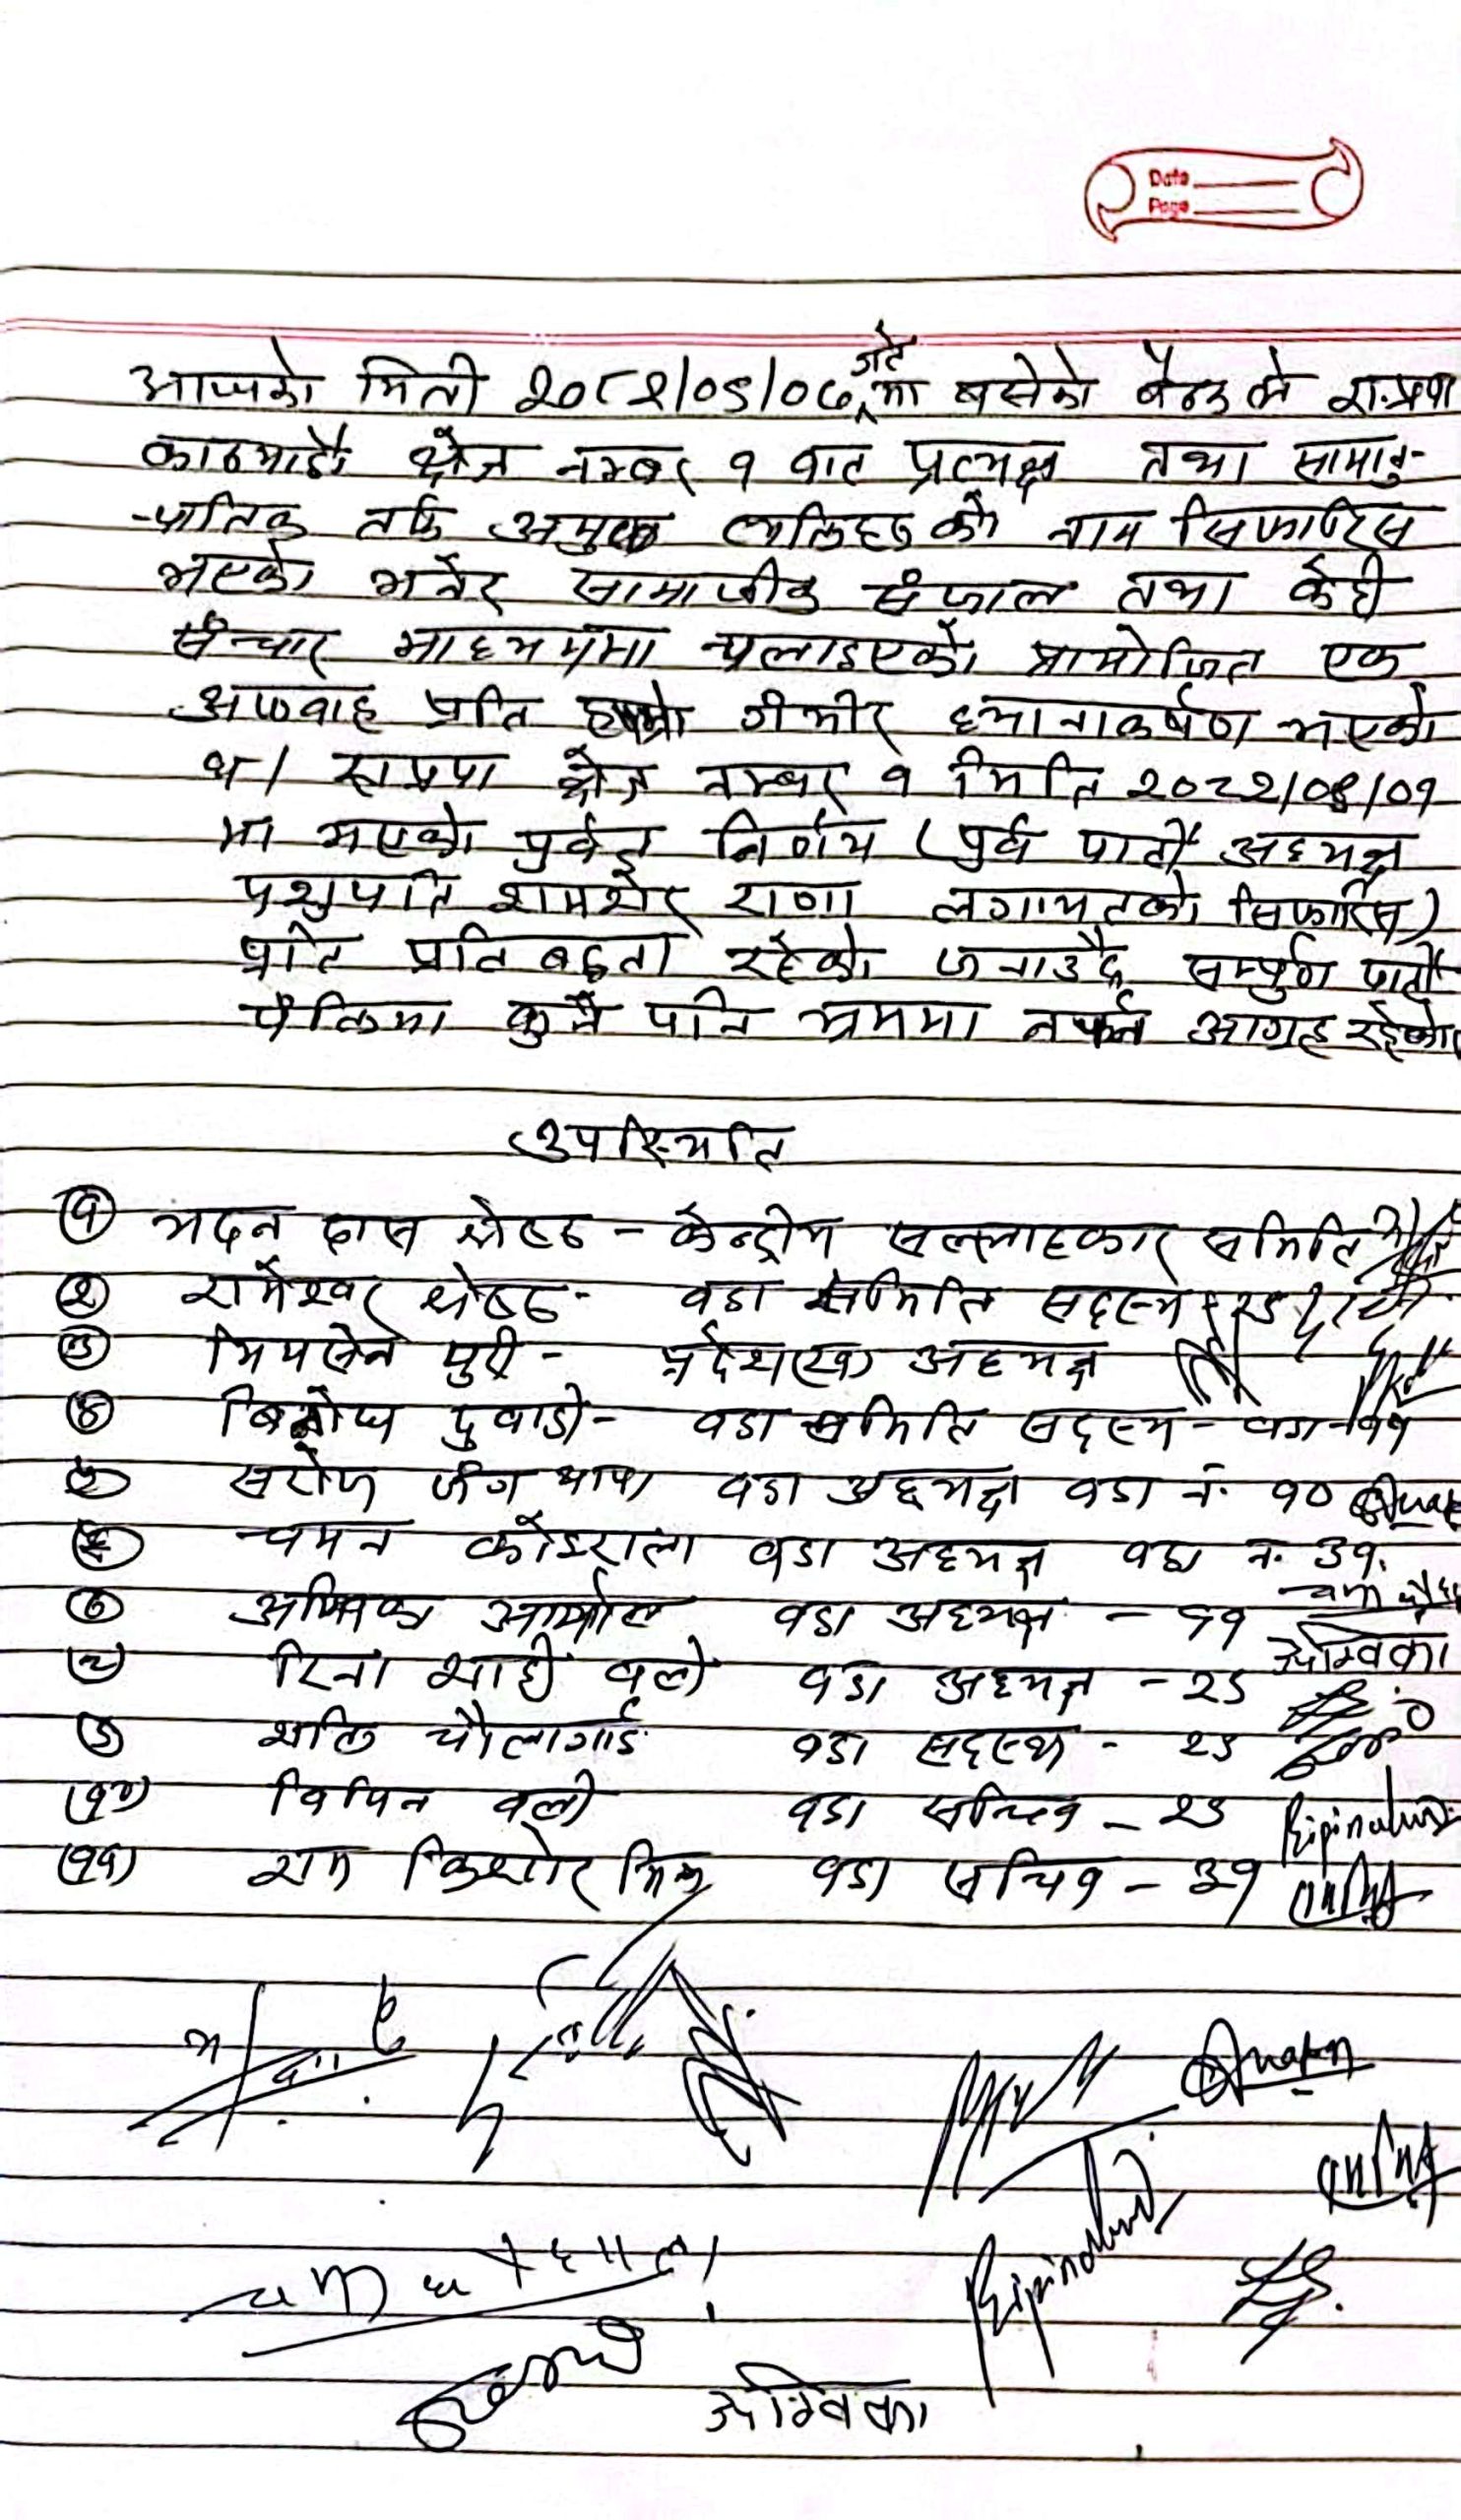 Date
Page
आजको मिती २०८२/०९/०७ गते मा बसेको बैठकले रा.प्र.पा
काठमाडौ क्षेत्र नम्बर १ बाट प्रत्यक्ष तथा सामानु-
-पातिक तर्फ अमुक व्यक्तिहरुको नाम सिफारिस
भएको भनेर सामाजीक संजाल तथा केही
संन्चार माध्यममा चलाइएको प्रायोजित एक
अफवाह प्रति हाम्रो गंभीर ध्यानाकर्षण भएको
छ। राप्रपा क्षेत्र नम्बर १ मिति २०८२/०८/०१
मा भएको पुर्वइ निर्णय (पुर्व पार्टी अध्यक्ष
पशुपति शमशेर राणा लगायतको सिफारिस)
प्रति प्रतिबद्धता रहेको जनाउदै सम्पुर्ण पार्टी
पंक्तिमा कुनै पनि भ्रममा नपर्न आग्रह रहेको
उपस्थिति
(१) मदन दास श्रेष्ठ - केन्द्रीय सल्लाहकार समिति
(२) रामेश्वर श्रेष्ठ - वडा समिति सदस्य २९
(३) भिमसेन पुरी - प्रदेश (ख) अध्यक्ष
(४) पुवाडी - वडा समिति सदस्य - वडा - ११
(५) सरोज जंग थापा वडा अध्यक्ष वडा नं. १०
(६) चमन कोइराला वडा अध्यक्ष वडा न. ३१.
(७) अम्बिका वडा अध्यक्ष - ११
अम्बिका
(८) रिना शाही वली वडा अध्यक्ष - २९
(९) शक्ति चौलागाई वडा सदस्य - २९
(१०) विपिन वली वडा सचिव - २९
(११) राम किशोर वडा सचिव - ३१
अम्बिका